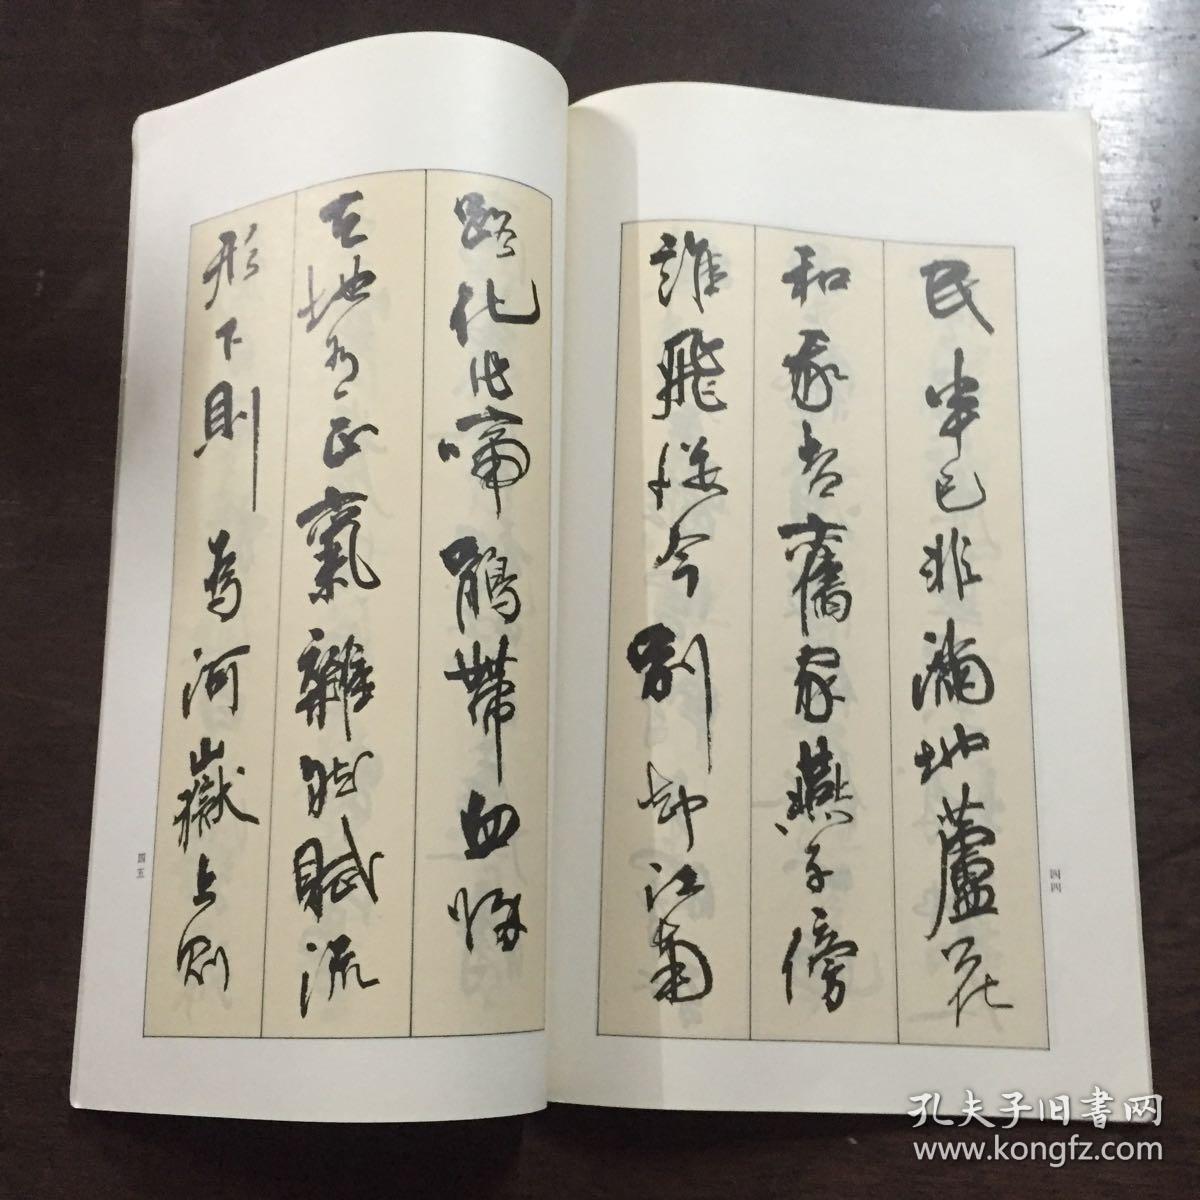 民半已非滿地蘆花
和我老舊家燕子傍
誰飛從今別却江南
四四
路化作啼鵑帶血歸
天地有正氣雜然賦流
形下則為河嶽上則
四五
孔夫子旧書网
www.kongfz.com